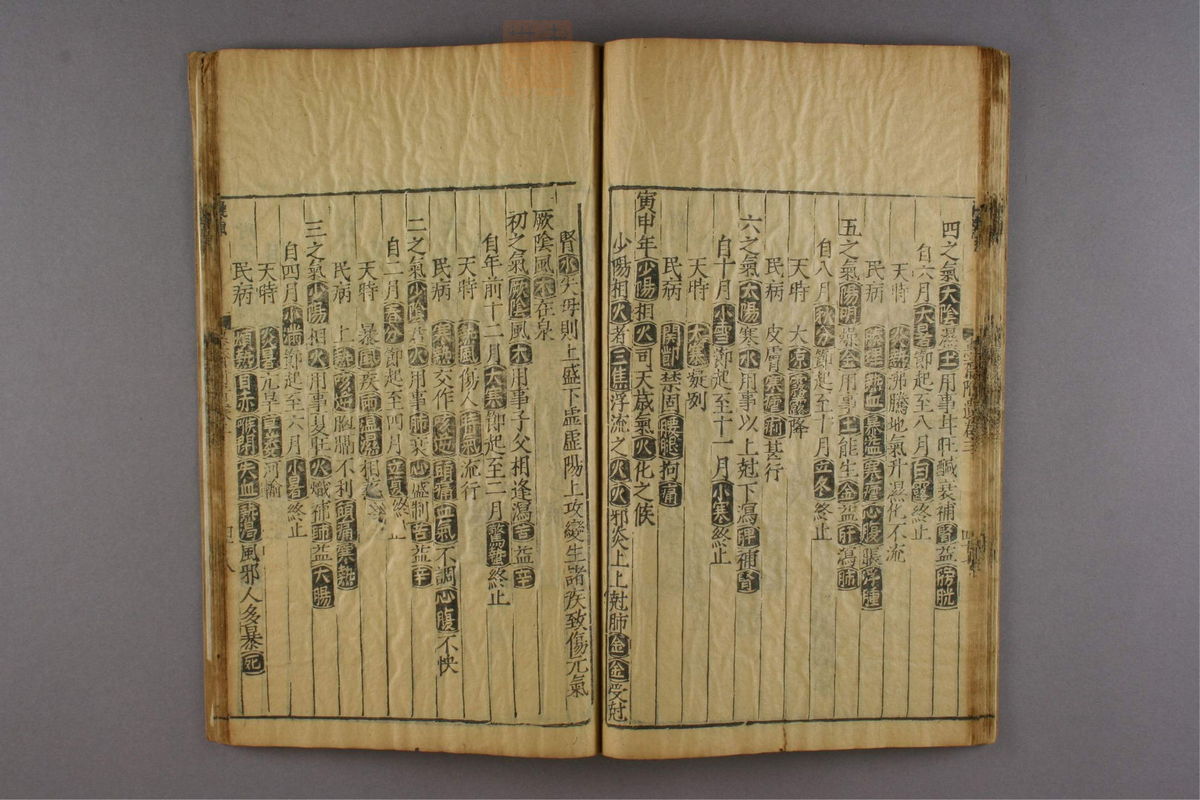 四之氣太陰濕土用事耳旺鹹衰補腎益膀胱
自六月大暑節起至八月白露終止
天時 火熱沸騰地氣升濕化不流
民病 熱血暴溢寒瘧心腹脹浮腫
五之氣陽明燥金用事土能生金益肝瀉肺
自八月秋分節起至十月立冬終止
天時 大凉霧露降
民病 皮膚寒瘧痢甚行
六之氣太陽寒水用事以上尅下瀉脾補腎
自十月小雪節起至十一月小寒終止
天時 大寒凝冽
民病 関節禁固腰脚拘痛
寅申年少陽相火司天歲氣火化之候
少陽相火者三焦浮流之火火邪炎上上尅肺金金受尅
腎水失母則上盛下虛虛陽上攻變生諸疾致傷元氣
厥陰風木在泉
初之氣厥陰風木用事子父相逢瀉苦益辛
自年前十二月大寒節起至二月驚蟄終止
天時 熱風傷人時氣流行
民病 寒熱交作咳逆頭痛血氣不調心腹不快
二之氣少陰君火用事肺衰心盛制苦益辛
自二月春分節起至四月立夏終止
天時 暴風疾雨温濕相蒸
民病 上熱咳逆胸膈不利頭痛寒熱
三之氣少陽相火用事夏旺火熾補肺益大腸
自四月小滿節起至六月小暑終止
天時 炎暑亢旱草萎河輸
民病 煩熱目赤喉閉失血熱渴風邪人多暴死